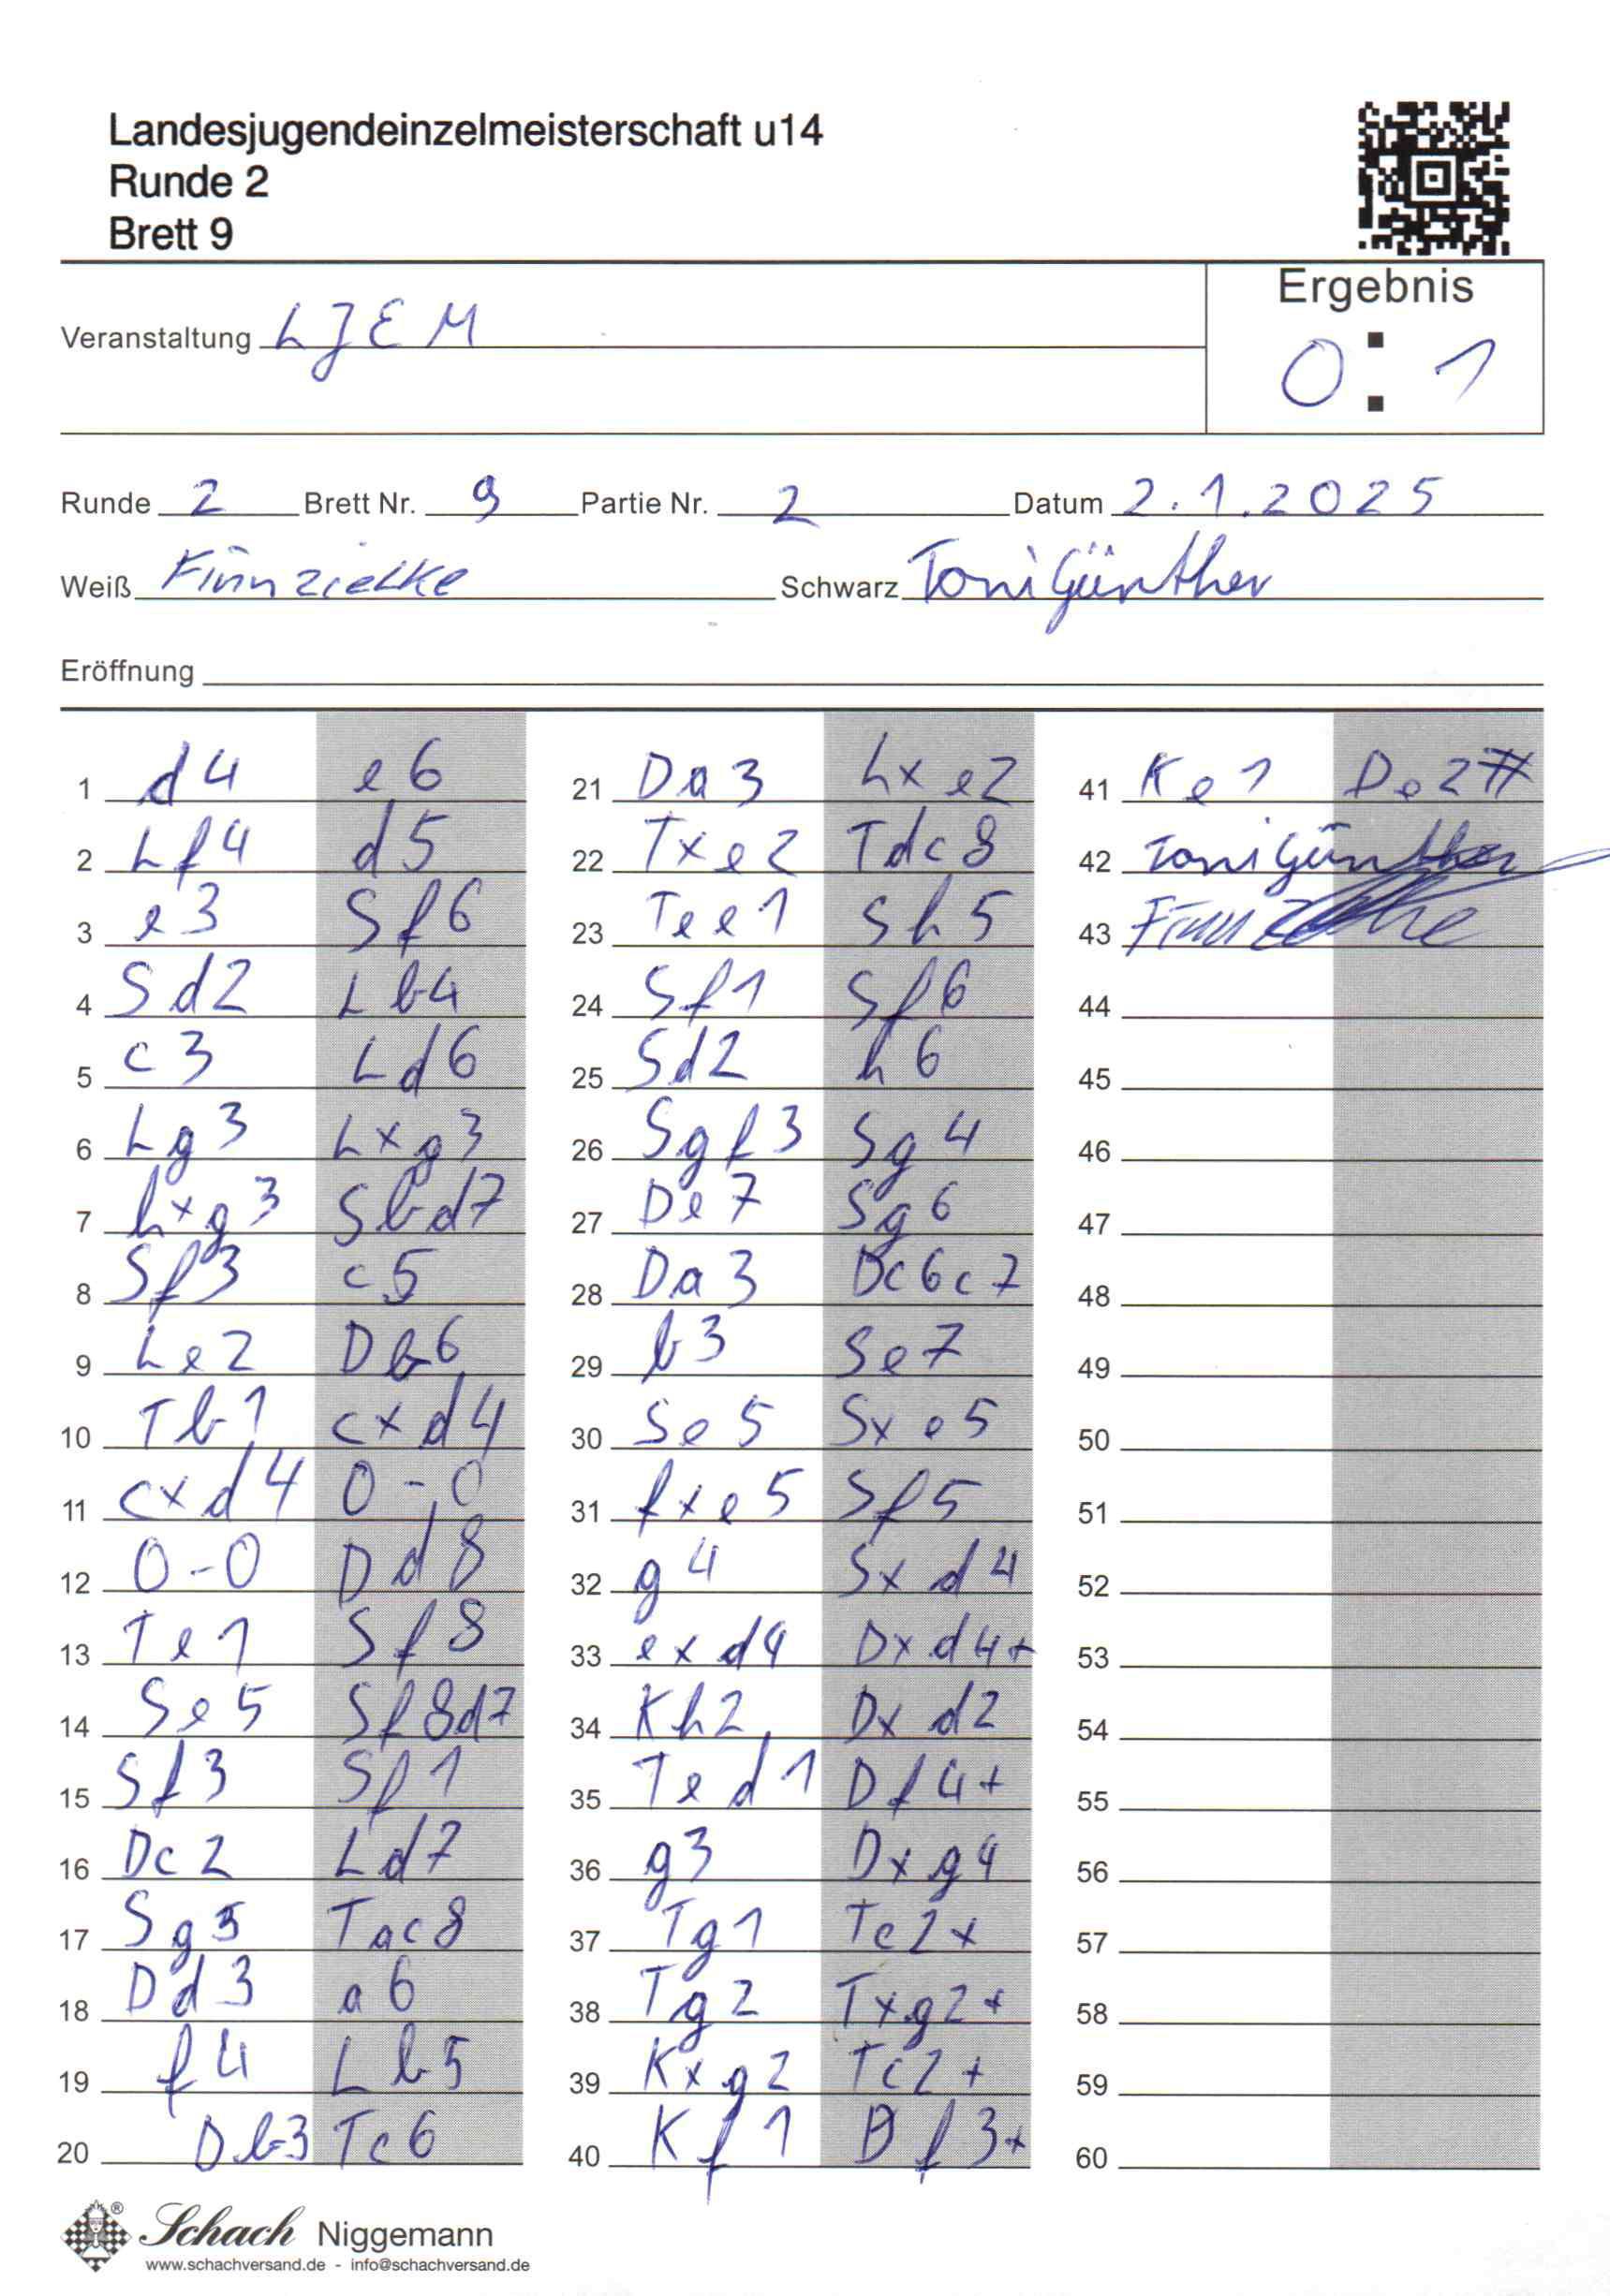 Landesjugendeinzelmeisterschaft u14
Runde 2
Brett 9
Ergebnis
0 : 1
Veranstaltung LJEM
Runde 2 Brett Nr. 9 Partie Nr. 2 Datum 2.1.2025
Weiß Finn Zielke Schwarz Toni Günther
Eröffnung
1 d4 e6
2 Lf4 d5
3 e3 Sf6
4 Sd2 Lb4
5 c3 Ld6
6 Lg3 Lxg3
7 hxg3 Sbd7
8 Sf3 c5
9 Le2 Db6
10 Tb1 cxd4
11 cxd4 0-0
12 0-0 Dd8
13 Te1 Sf8
14 Se5 Sf8d7
15 Sf3 Sf1
16 Dc2 Ld7
17 Sg5 Tac8
18 Dd3 a6
19 f4 Lb5
20 Db3 Tc6
21 Da3 Lxe2
22 Txe2 Tdc8
23 Tee1 Sh5
24 Sf1 Sf6
25 Sd2 h6
26 Sgf3 Sg4
27 De7 Sg6
28 Da3 Dc6c7
29 b3 Se7
30 Se5 Sxe5
31 fxe5 Sf5
32 g4 Sxd4
33 exd4 Dxd4+
34 Kh2 Dxd2
35 Ted1 Df4+
36 g3 Dxg4
37 Tg1 Tc2+
38 Tg2 Txg2+
39 Kxg2 Tc2+
40 Kf1 Df3+
41 Ke1 De2#
42 Toni Günther
43 Finn Zielke
44
45
46
47
48
49
50
51
52
53
54
55
56
57
58
59
60
Schach Niggemann
www.schachversand.de - info@schachversand.de